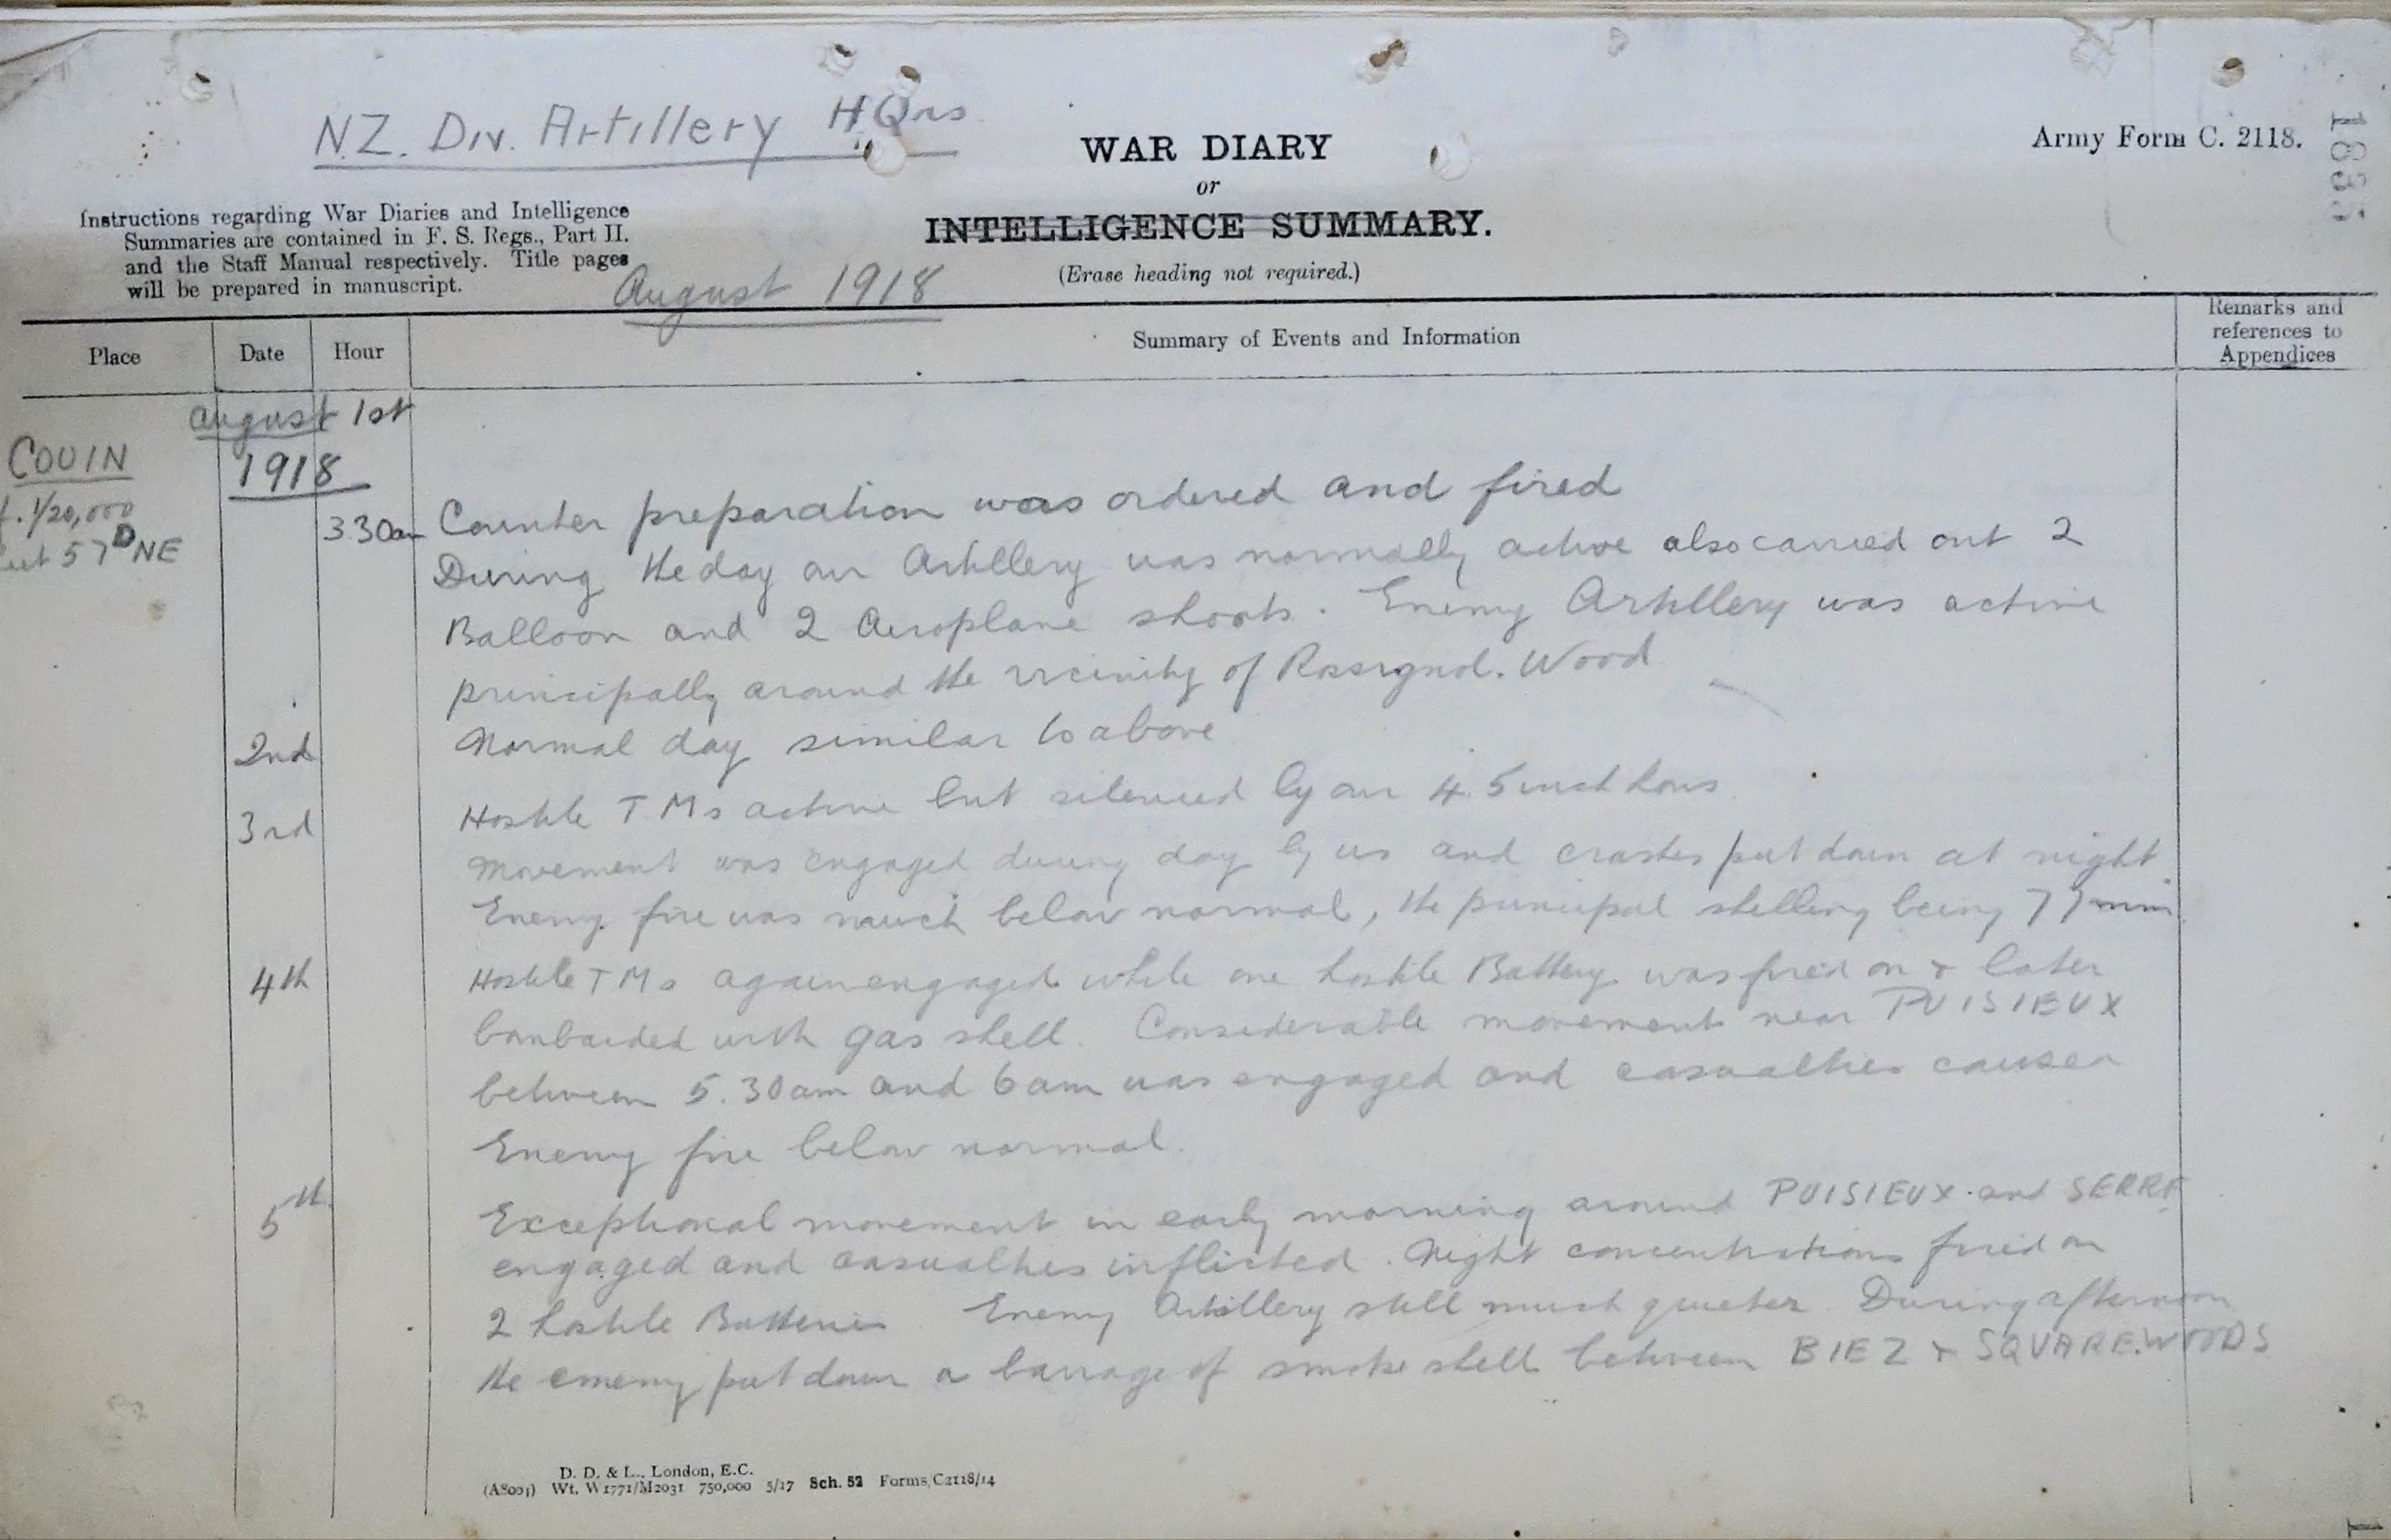 N.Z. Div. Artillery HQrs
WAR DIARY
or
INTELLIGENCE SUMMARY.
(Erase heading not required.)
Army Form C. 2118.
Instructions regarding War Diaries and Intelligence
Summaries are contained in F. S. Regs., Part II.
and the Staff Manual respectively. Title pages
will be prepared in manuscript.
August 1918
Place
Date
Hour
Summary of Events and Information
Remarks and
references to
Appendices
August 1st
COUIN
1918
1/20,000
57D NE
3.30am Counter preparation was ordered and fired
During the day our Artillery was normally active also carried out 2
Balloon and 2 Aeroplane shoots. Enemy Artillery was active
principally around the vicinity of Rossignol. Wood
2nd Normal day similar to above
3rd Hostile T Ms active but silenced by our 4.5 inch hows.
Movement was engaged during day by us and crashes put down at night
Enemy fire was much below normal, the principal shelling being 77mm.
4th Hostile T Ms again engaged while one hostile Battery was fired on + later
bombarded with gas shell. Considerable movement near PUISIEUX
between 5.30am and 6am was engaged and casualties caused
Enemy fire below normal.
5th Exceptional movement in early morning around PUISIEUX and SERRE
engaged and casualties inflicted. Night concentrations fired on
2 hostile Batteries Enemy Artillery still much quieter During afternoon
the enemy put down a barrage of smoke shell between BIEZ + SQUARE.WOODS
D. D. & L., London, E.C.
(A8001) Wt. W1771/M2031 750,000 5/17 Sch. 52 Forms/C2118/14